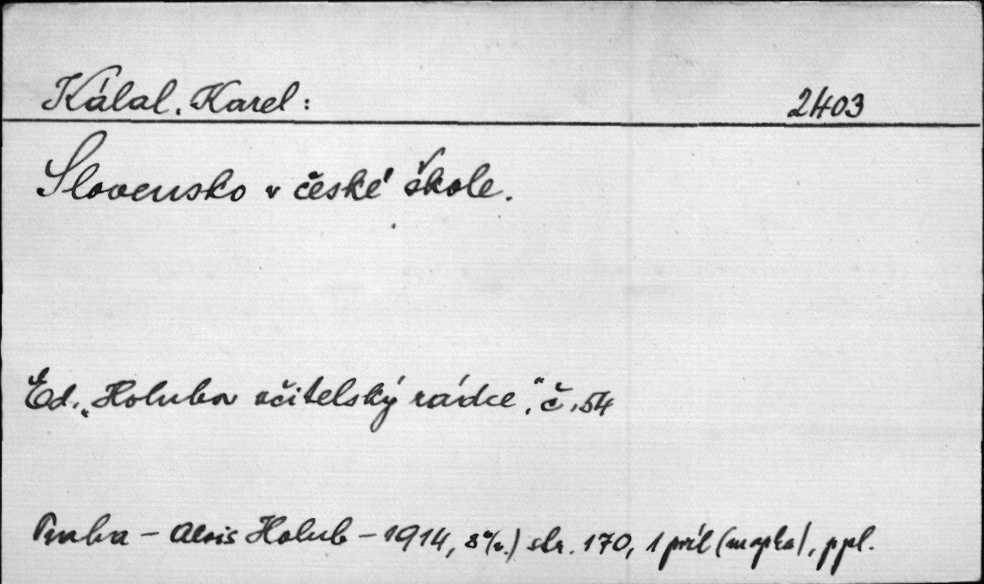 Kálal, Karel: 2403
Slovensko v české škole.
Ed. „Holubův učitelský rádce“, č. 54
Praha – Alois Holub – 1914, 8°(v.) str. 170, 1 příl (mapka), ppl.